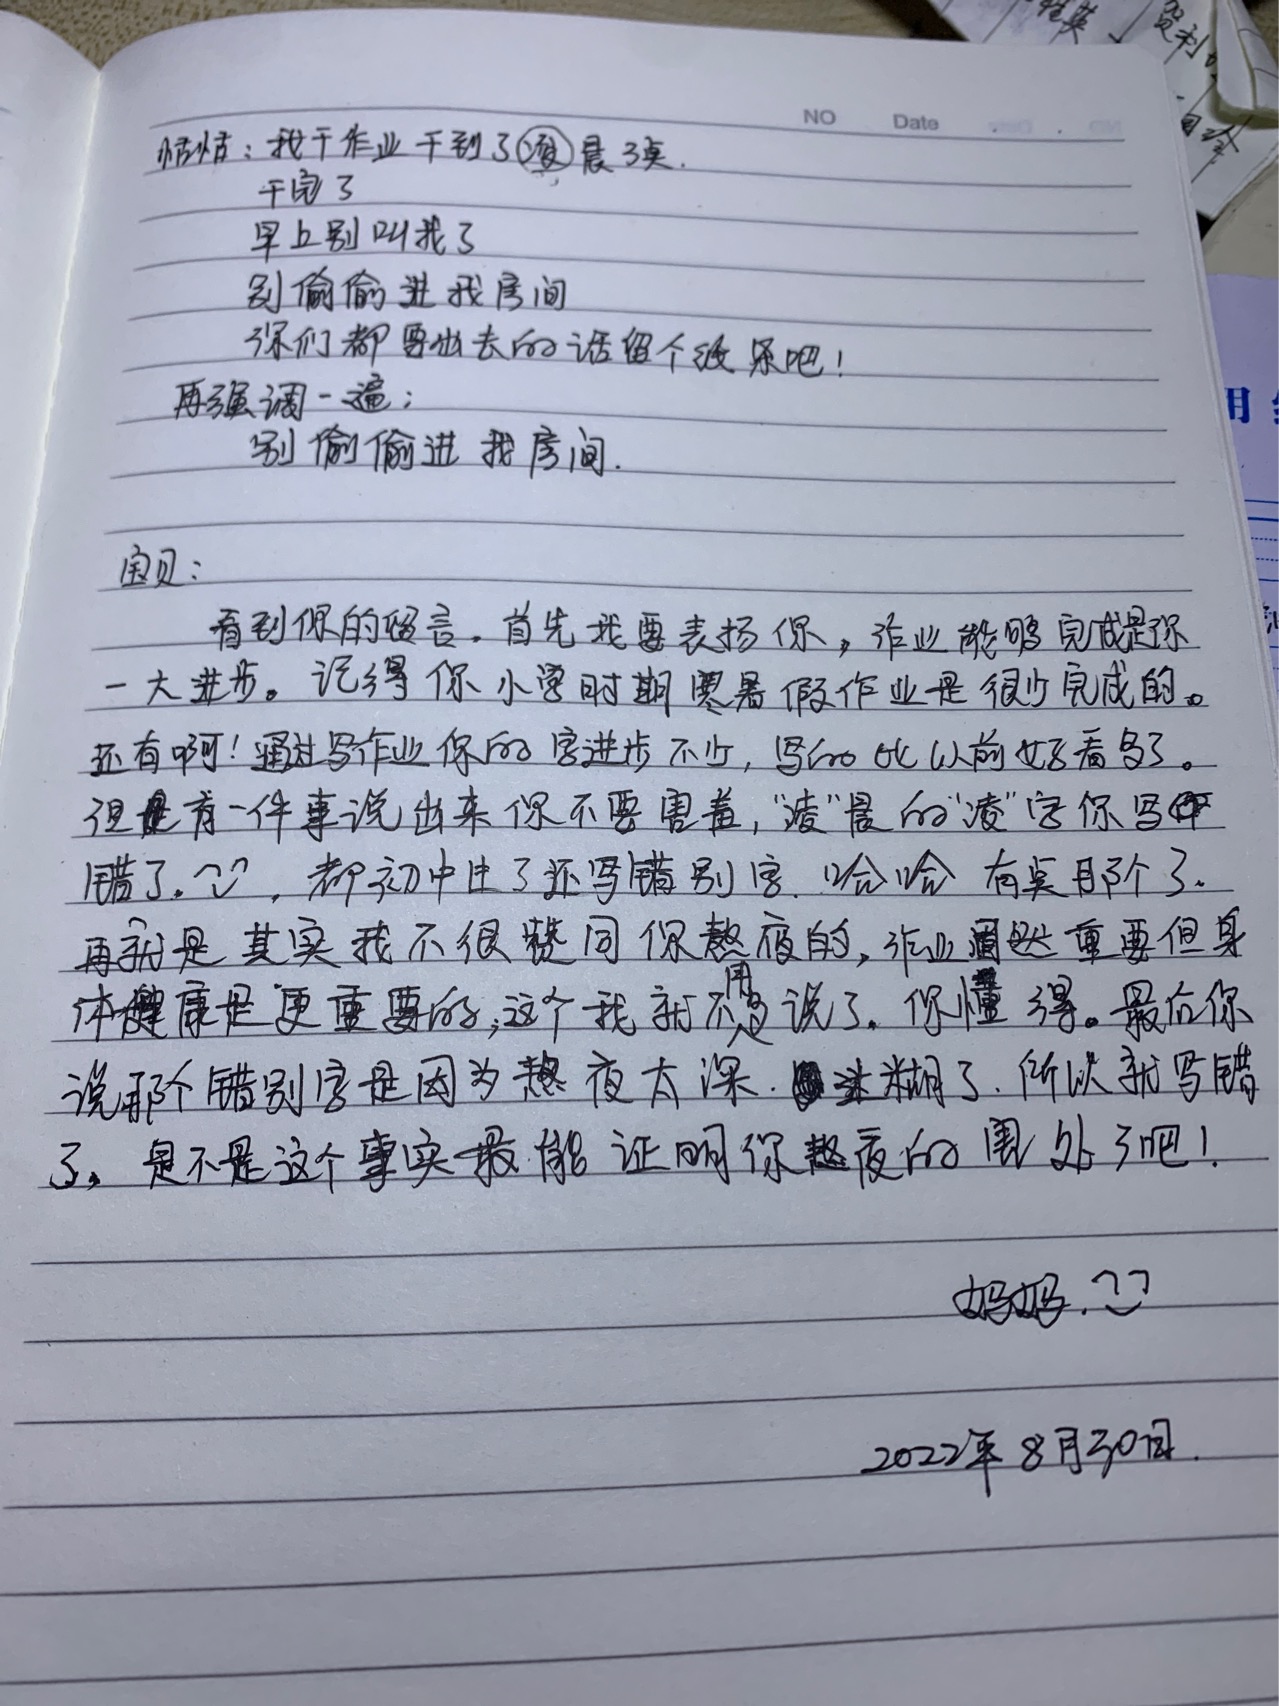 NO Date
恬恬：我干作业干到了凌晨3点.
干完了
早上别叫我了
别偷偷进我房间
你们都要出去的话留个纸条吧！
再强调一遍：
别偷偷进我房间.
宝贝：
看到你的留言.首先我要表扬你，作业能够完成是你
一大进步。记得你小学时期寒暑假作业是很少完成的。
还有啊！通过写作业你的字进步不少，写的比以前好看多了。
但是有一件事说出来你不要害羞，“凌”晨的“凌”字你写
错了.都初中生了还写错别字.哈哈 有点那个了.
再就是其实我不很赞同你熬夜的，作业固然重要但身
体健康是更重要的，这个我就不用多说了.你懂得。最后你
说那个错别字是因为熬夜太深.迷糊了.所以就写错
了，是不是这个事实最能证明你熬夜的害处了吧！
妈妈.
2022年8月30日.
用